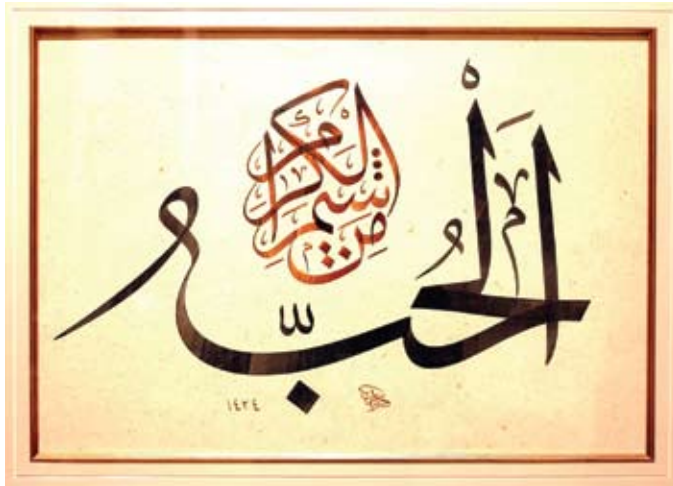 الحب
من شيم الكرام
١٤٢٤